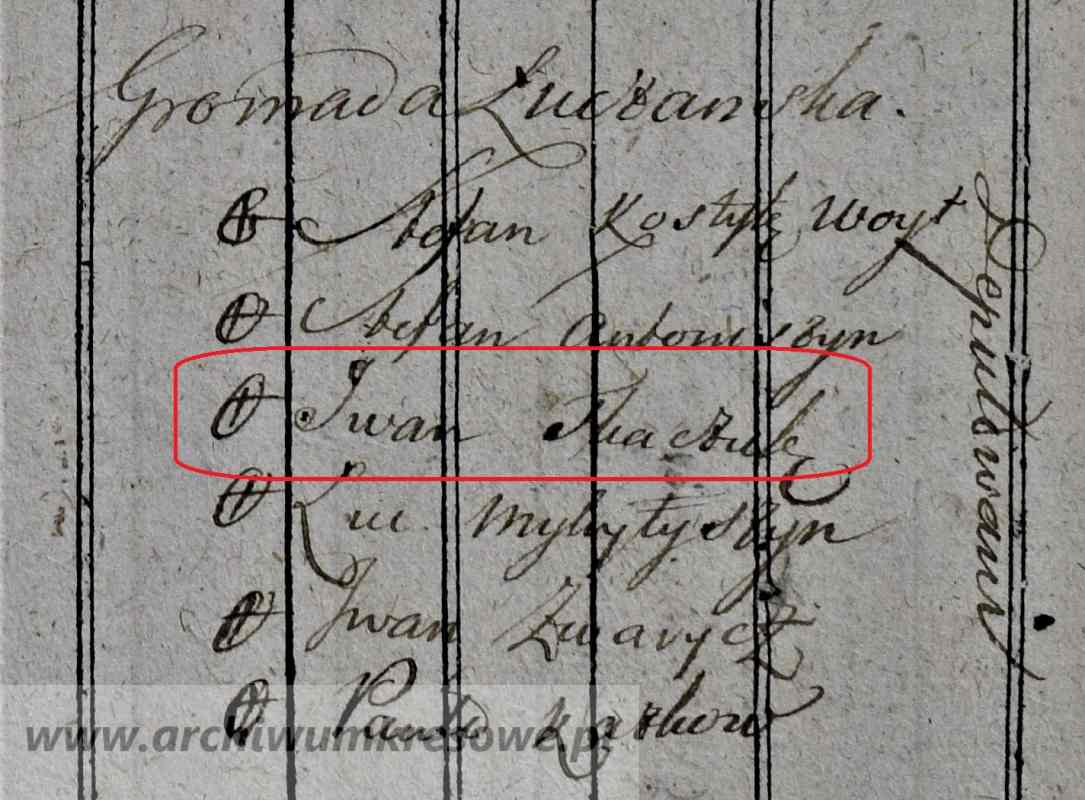 Gromada Łuczanska.
Stefan Kostyk Woyt
Stefan Antoniszyn
Iwan Tkaczuk
Luc. Mykytyszyn
Iwan Zwarycz
Pawło
Deputowani
www.archiwumkresowe.pl